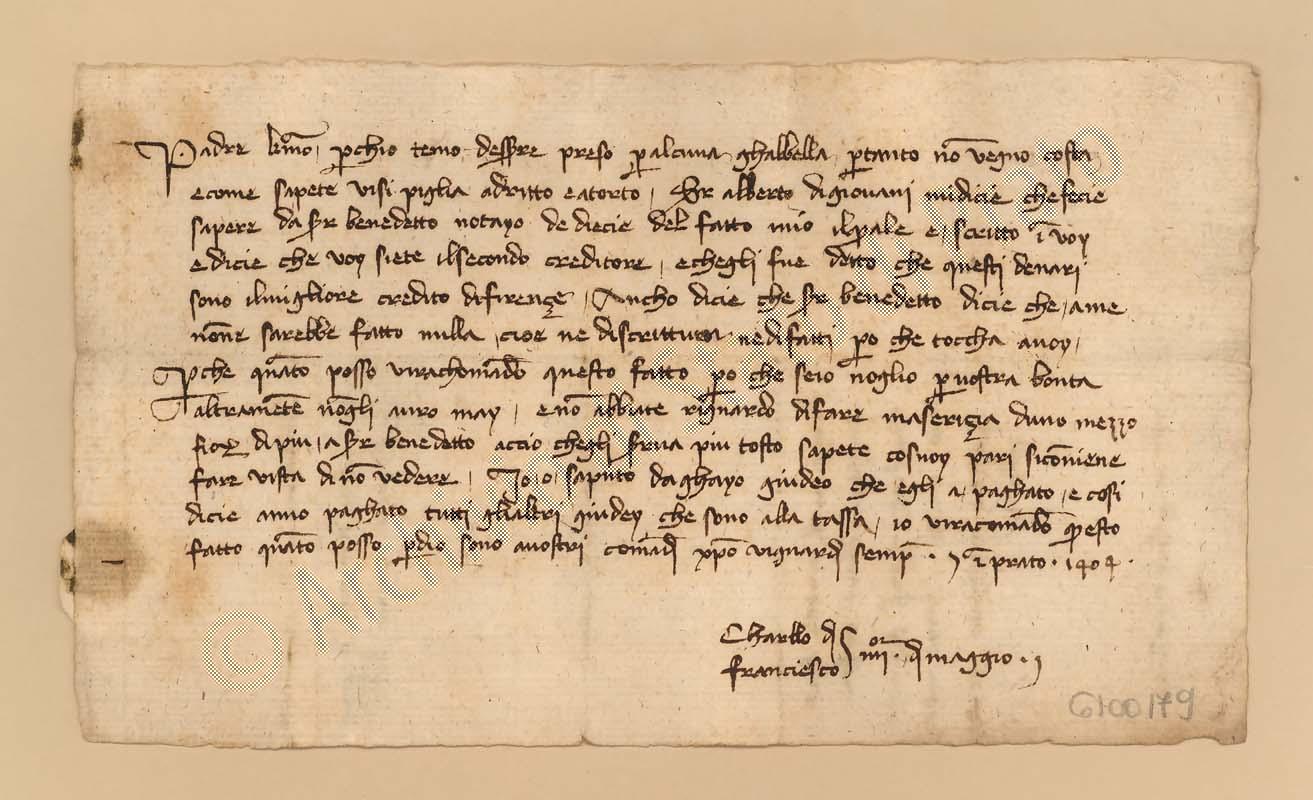 Padre kr̃mo, perchio temo dessere preso per alcuna ghabbella, pertanto nō vegno costa
e come sapete visi piglia adritto e atorto, Ser alberto digiovani midicie che fecie
sapere da ser benedetto notayo de diecie del fatto mio ilquale e, scritto ī voy
e dicie che voy siete ilsecondo creditore, e chegli fue detto che questi denari
sono ilmigliore credito difirençe, Ancho dicie che ser benedetto dicie che, ame
nōne sarebbe fatto nulla, cioe ne discrittura, nedifatti, pero che toccha avoy,
Perche quāto posso virachomādo questo fatto pero che seio noglio per vostra bonta
altramēte nōgli auro may, e nō abbiate riguardo difare maseriçia duno mezzo
fior di piu, a ser benedetto accio chegli serua piu tosto sapete cosuoy pari sicōviene
fare vista di nō vedere, Io, o, saputo da ghayo giudeo che egli a, paghato, e cosi
dicie anno paghato tutti glialtri giudey che sono alla tassa, io viracomādo questo
fatto quāto posso perdio sono avostri comādi xp̄o viguardi semp̄ . ī prato . 1404 .
Charllo di
Franciesco
iiii . di maggio .
6100179
© Archivio di Stato di Prato